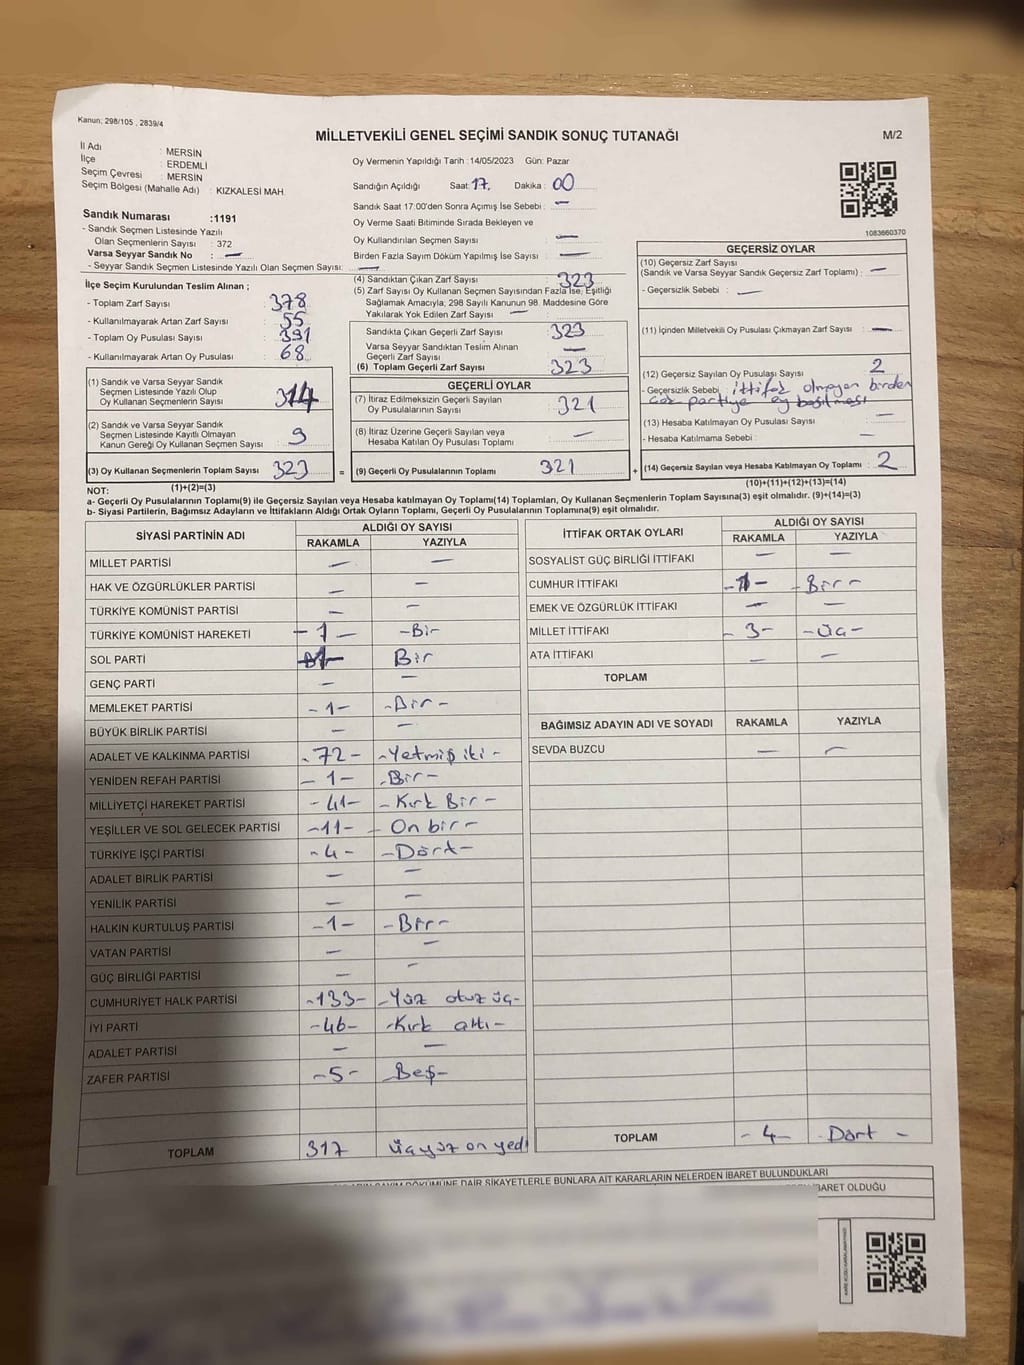 Kanun; 298/105 , 2839/4
MİLLETVEKİLİ GENEL SEÇİMİ SANDIK SONUÇ TUTANAĞI
M/2
İl Adı : MERSİN
İlçe : ERDEMLİ
Seçim Çevresi : MERSİN
Seçim Bölgesi (Mahalle Adı) : KIZKALESİ MAH.
Sandık Numarası :1191
- Sandık Seçmen Listesinde Yazılı
Olan Seçmenlerin Sayısı : 372
Varsa Seyyar Sandık No : —
- Seyyar Sandık Seçmen Listesinde Yazılı Olan Seçmen Sayısı: —
Oy Vermenin Yapıldığı Tarih :14/05/2023 Gün: Pazar
Sandığın Açıldığı Saat: 17. Dakika : 00
Sandık Saat 17:00'den Sonra Açımış İse Sebebi : —
Oy Verme Saati Bitiminde Sırada Bekleyen ve
Oy Kullandırılan Seçmen Sayısı : —
Birden Fazla Sayım Döküm Yapılmış İse Sayısı : —
1083660370
İlçe Seçim Kurulundan Teslim Alınan ;
- Toplam Zarf Sayısı : 378
- Kullanılmayarak Artan Zarf Sayısı : 55
- Toplam Oy Pusulası Sayısı : 391
- Kullanılmayarak Artan Oy Pusulası : 68
(1) Sandık ve Varsa Seyyar Sandık
Seçmen Listesinde Yazılı Olup
Oy Kullanan Seçmenlerin Sayısı : 314
(2) Sandık ve Varsa Seyyar Sandık
Seçmen Listesinde Kayıtlı Olmayan
Kanun Gereği Oy Kullanan Seçmen Sayısı : 9
(3) Oy Kullanan Seçmenlerin Toplam Sayısı : 323
(1)+(2)=(3)
(4) Sandıktan Çıkan Zarf Sayısı : 323
(5) Zarf Sayısı Oy Kullanan Seçmen Sayısından Fazla İse, Eşitliği
Sağlamak Amacıyla; 298 Sayılı Kanunun 98. Maddesine Göre
Yakılarak Yok Edilen Zarf Sayısı : —
Sandıkta Çıkan Geçerli Zarf Sayısı : 323
Varsa Seyyar Sandıktan Teslim Alınan
Geçerli Zarf Sayısı : —
(6) Toplam Geçerli Zarf Sayısı : 323
GEÇERLİ OYLAR
(7) İtiraz Edilmeksizin Geçerli Sayılan
Oy Pusulalarının Sayısı : 321
(8) İtiraz Üzerine Geçerli Sayılan veya
Hesaba Katılan Oy Pusulası Toplamı : —
= (9) Geçerli Oy Pusulalarının Toplamı : 321
GEÇERSİZ OYLAR
(10) Geçersiz Zarf Sayısı
(Sandık ve Varsa Seyyar Sandık Geçersiz Zarf Toplamı) : —
- Geçersizlik Sebebi : —
(11) İçinden Milletvekili Oy Pusulası Çıkmayan Zarf Sayısı : —
(12) Geçersiz Sayılan Oy Pusulaşı Sayısı : 2
- Geçersizlik Sebebi : ittifak olmayan birden
çok partiye oy basılması
(13) Hesaba Katılmayan Oy Pusulası Sayısı : —
- Hesaba Katılmama Sebebi : —
+ (14) Geçersiz Sayılan veya Hesaba Katılmayan Oy Toplamı : 2
(10)+(11)+(12)+(13)=(14)
NOT:
a- Geçerli Oy Pusulalarının Toplamı(9) ile Geçersiz Sayılan veya Hesaba katılmayan Oy Toplamı(14) Toplamları, Oy Kullanan Seçmenlerin Toplam Sayısına(3) eşit olmalıdır. (9)+(14)=(3)
b- Siyasi Partilerin, Bağımsız Adayların ve İttifakların Aldığı Ortak Oyların Toplamı, Geçerli Oy Pusulalarının Toplamına(9) eşit olmalıdır.
SİYASİ PARTİNİN ADI ALDIĞI OY SAYISI
RAKAMLA YAZIYLA
MİLLET PARTİSİ — —
HAK VE ÖZGÜRLÜKLER PARTİSİ — —
TÜRKİYE KOMÜNİST PARTİSİ — —
TÜRKİYE KOMÜNİST HAREKETİ -1- -Bir-
SOL PARTİ 1- Bir
GENÇ PARTİ — —
MEMLEKET PARTİSİ -1- -Bir-
BÜYÜK BİRLİK PARTİSİ — —
ADALET VE KALKINMA PARTİSİ -72- -Yetmiş iki-
YENİDEN REFAH PARTİSİ -1- -Bir-
MİLLİYETÇİ HAREKET PARTİSİ -41- -Kırk Bir-
YEŞİLLER VE SOL GELECEK PARTİSİ -11- -On bir-
TÜRKİYE İŞÇİ PARTİSİ -4- -Dört-
ADALET BİRLİK PARTİSİ — —
YENİLİK PARTİSİ — —
HALKIN KURTULUŞ PARTİSİ -1- -Bir-
VATAN PARTİSİ — —
GÜÇ BİRLİĞİ PARTİSİ — —
CUMHURİYET HALK PARTİSİ -133- -Yüz otuz üç-
İYİ PARTİ -46- -Kırk altı-
ADALET PARTİSİ — —
ZAFER PARTİSİ -5- Beş-
TOPLAM 317 üçyüz on yedi
İTTİFAK ORTAK OYLARI ALDIĞI OY SAYISI
RAKAMLA YAZIYLA
SOSYALİST GÜÇ BİRLİĞİ İTTİFAKI — —
CUMHUR İTTİFAKI -1- -Bir-
EMEK VE ÖZGÜRLÜK İTTİFAKI — —
MİLLET İTTİFAKI -3- -üç-
ATA İTTİFAKI — —
TOPLAM
BAĞIMSIZ ADAYIN ADI VE SOYADI RAKAMLA YAZIYLA
SEVDA BUZCU — —
TOPLAM -4- -Dört-
DÖKÜMÜNE DAİR ŞİKAYETLERLE BUNLARA AİT KARARLARIN NELERDEN İBARET BULUNDUKLARI
İBARET OLDUĞU